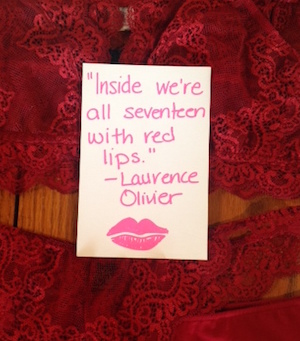 "Inside we're
all seventeen
with red
lips."
—Laurence
Olivier